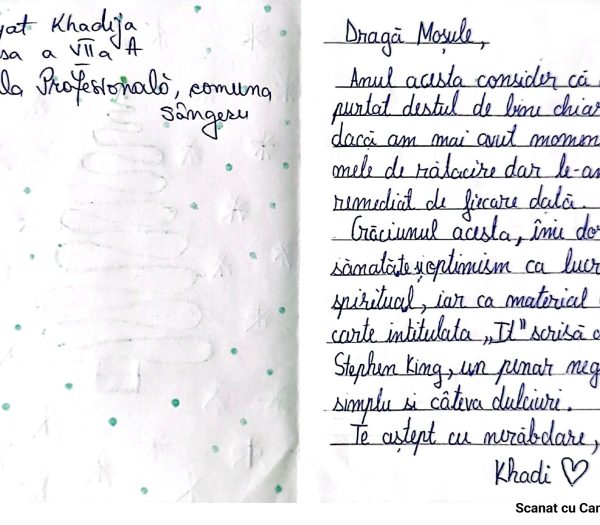 yat Khadija
sa a VII a A
la Profesională, comuna
Sângeru
Dragă Moșule,
Anul acesta consider că
purtat destul de bine chiar
dacă am mai avut momen
mele de rătăcire dar le-am
remediat de fiecare dată.
Crăciunul acesta, îmi do
sănatăte și optimism ca lucr
spiritual, iar ca material
carte intitulata „It" scrisă
Stephen King, un penar neg
simplu si câteva dulciuri.
Te aștept cu nerăbdare,
Khadi
Scanat cu Car